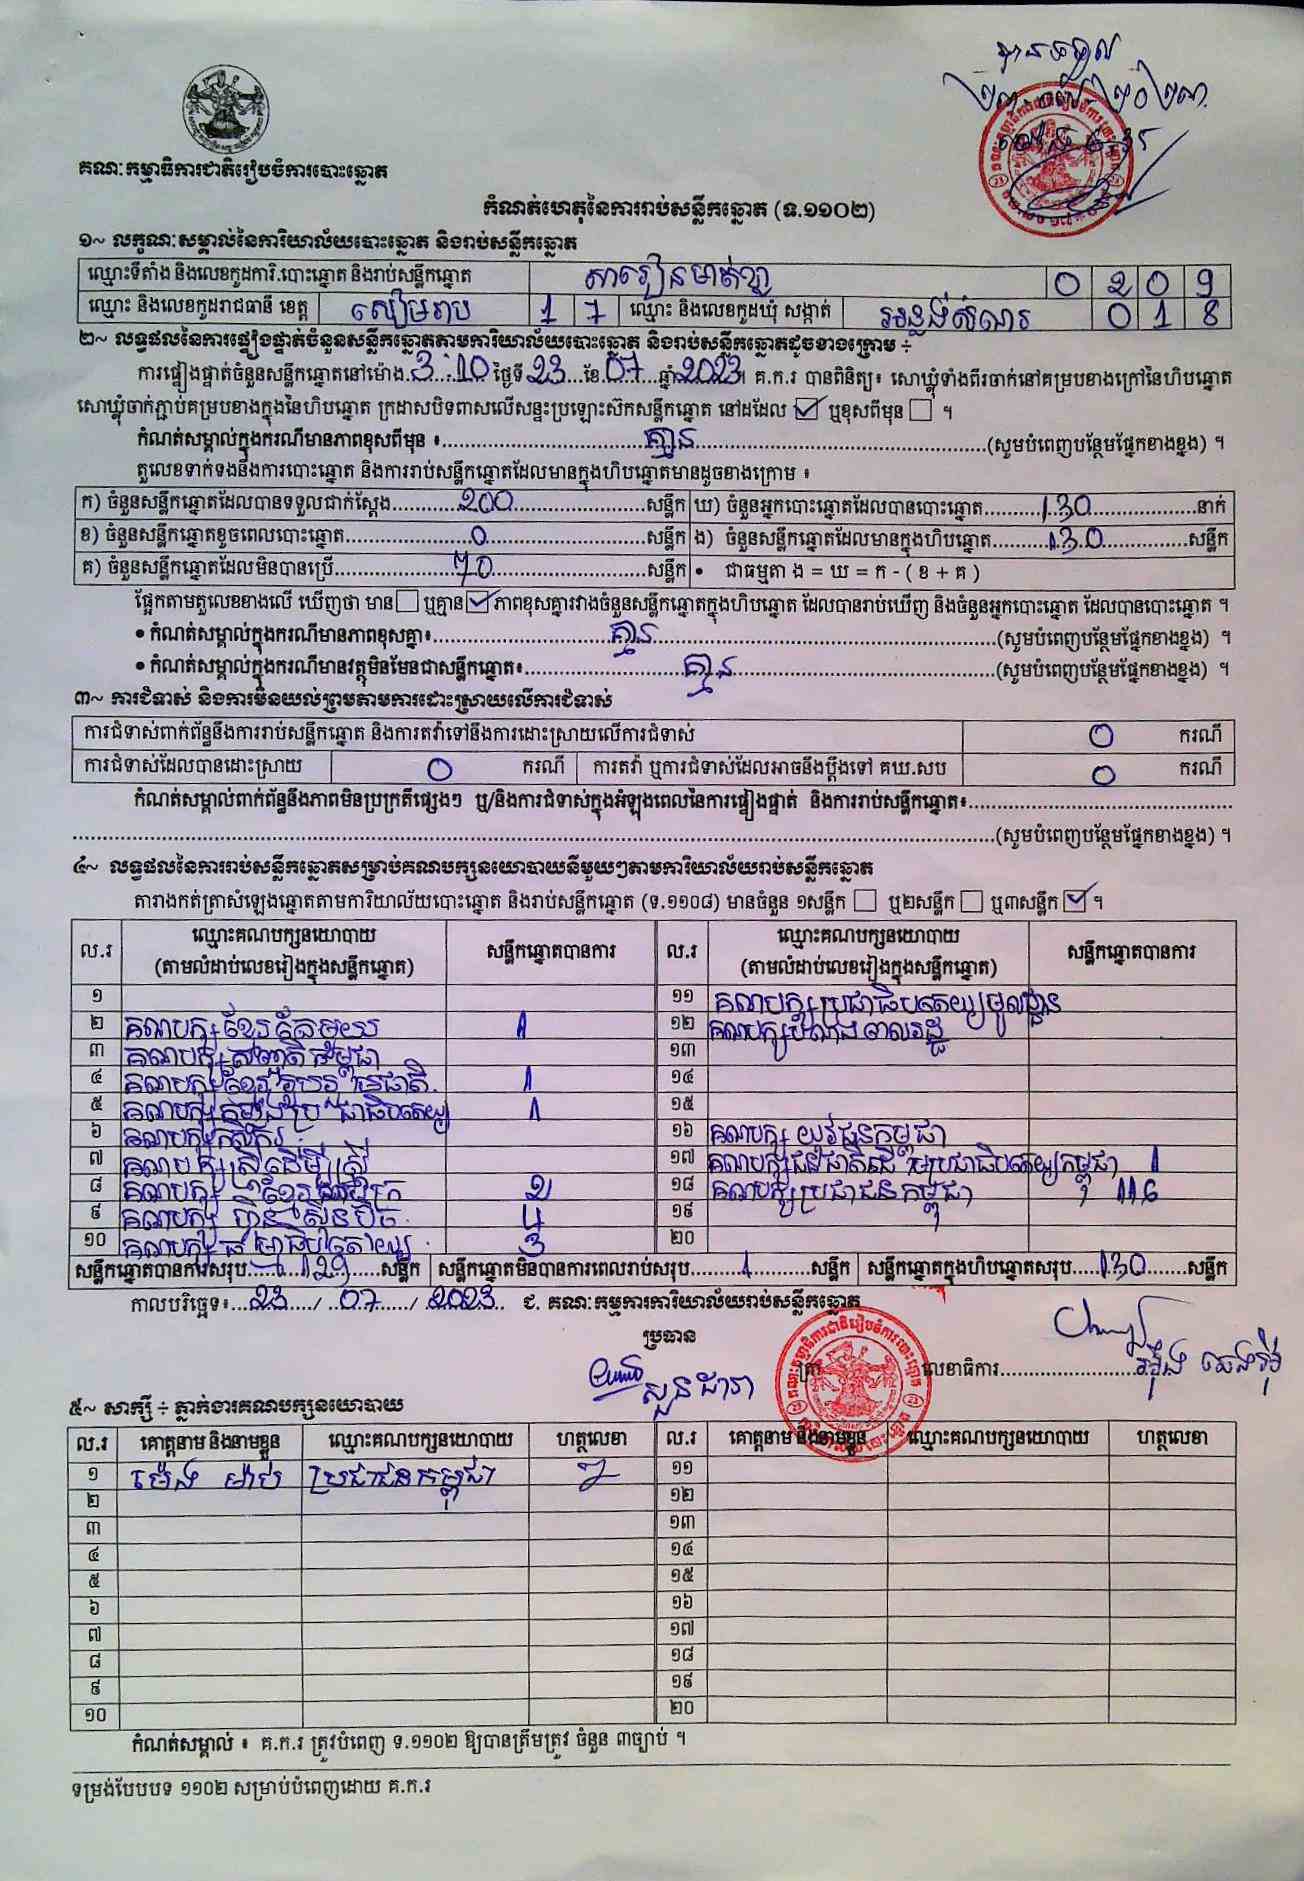 គណៈកម្មាធិការជាតិរៀបចំការបោះឆ្នោត
កំណត់ហេតុនៃការរាប់សន្លឹកឆ្នោត (ទ.១១០២)
១~ លក្ខណៈសម្គាល់នៃការិយាល័យបោះឆ្នោត និងរាប់សន្លឹកឆ្នោត
ឈ្មោះទីតាំង និងលេខកូដការិ.បោះឆ្នោត និងរាប់សន្លឹកឆ្នោត 0 2 0 9
ឈ្មោះ និងលេខកូដរាជធានី ខេត្ត សៀមរាប 1 7 ឈ្មោះ និងលេខកូដឃុំ សង្កាត់ អន្លង់សំណរ 0 1 8
២~ លទ្ធផលនៃការផ្ទៀងផ្ទាត់ចំនួនសន្លឹកឆ្នោតតាមការិយាល័យបោះឆ្នោត និងរាប់សន្លឹកឆ្នោតដូចខាងក្រោម ÷
ការផ្ទៀងផ្ទាត់ចំនួនសន្លឹកឆ្នោតនៅម៉ោង 3:10 ថ្ងៃទី 23 ខែ 07 ឆ្នាំ 2023។ គ.ក.រ បានពិនិត្យ៖ សោឃ្លុំទាំងពីរចាក់នៅគម្របខាងក្រៅនៃហិបឆ្នោត
សោឃ្លុំចាក់ភ្ជាប់គម្របខាងក្នុងនៃហិបឆ្នោត ក្រដាសបិទពាសលើសន្ទះប្រឡោះស៊កសន្លឹកឆ្នោត នៅដដែល ☑ ឬខុសពីមុន ☐ ។
កំណត់សម្គាល់ក្នុងករណីមានភាពខុសពីមុន ៖ គ្មាន (សូមបំពេញបន្ថែមផ្នែកខាងខ្នង) ។
តួលេខទាក់ទងនឹងការបោះឆ្នោត និងការរាប់សន្លឹកឆ្នោតដែលមានក្នុងហិបឆ្នោតមានដូចខាងក្រោម ៖
ក) ចំនួនសន្លឹកឆ្នោតដែលបានទទួលជាក់ស្តែង 200 សន្លឹក ឃ) ចំនួនអ្នកបោះឆ្នោតដែលបានបោះឆ្នោត 130 នាក់
ខ) ចំនួនសន្លឹកឆ្នោតខូចពេលបោះឆ្នោត 0 សន្លឹក ង) ចំនួនសន្លឹកឆ្នោតដែលមានក្នុងហិបឆ្នោត 130 សន្លឹក
គ) ចំនួនសន្លឹកឆ្នោតដែលមិនបានប្រើ 70 សន្លឹក • ជាធម្មតា ង = ឃ = ក - ( ខ + គ )
ផ្អែកតាមតួលេខខាងលើ ឃើញថា មាន ☐ ឬគ្មាន ☑ ភាពខុសគ្នារវាងចំនួនសន្លឹកឆ្នោតក្នុងហិបឆ្នោត ដែលបានរាប់ឃើញ និងចំនួនអ្នកបោះឆ្នោត ដែលបានបោះឆ្នោត ។
• កំណត់សម្គាល់ក្នុងករណីមានភាពខុសគ្នា៖ គ្មាន (សូមបំពេញបន្ថែមផ្នែកខាងខ្នង) ។
• កំណត់សម្គាល់ក្នុងករណីមានវត្ថុមិនមែនជាសន្លឹកឆ្នោត៖ គ្មាន (សូមបំពេញបន្ថែមផ្នែកខាងខ្នង) ។
៣~ ការជំទាស់ និងការមិនយល់ព្រមតាមការដោះស្រាយលើការជំទាស់
ការជំទាស់ពាក់ព័ន្ធនឹងការរាប់សន្លឹកឆ្នោត និងការតវ៉ាទៅនឹងការដោះស្រាយលើការជំទាស់ 0 ករណី
ការជំទាស់ដែលបានដោះស្រាយ 0 ករណី ការតវ៉ា ឬការជំទាស់ដែលអាចនឹងប្តឹងទៅ គឃ.សប 0 ករណី
កំណត់សម្គាល់ពាក់ព័ន្ធនឹងភាពមិនប្រក្រតីផ្សេងៗ ឬ/និងការជំទាស់ក្នុងអំឡុងពេលនៃការផ្ទៀងផ្ទាត់ និងការរាប់សន្លឹកឆ្នោត៖
(សូមបំពេញបន្ថែមផ្នែកខាងខ្នង) ។
៤~ លទ្ធផលនៃការរាប់សន្លឹកឆ្នោតសម្រាប់គណបក្សនយោបាយនីមួយៗតាមការិយាល័យរាប់សន្លឹកឆ្នោត
តារាងកត់ត្រាសំឡេងឆ្នោតតាមការិយាល័យបោះឆ្នោត និងរាប់សន្លឹកឆ្នោត (ទ.១១០៨) មានចំនួន ១សន្លឹក ☐ ឬ២សន្លឹក ☐ ឬ៣សន្លឹក ☑ ។
ល.រ ឈ្មោះគណបក្សនយោបាយ សន្លឹកឆ្នោតបានការ ល.រ ឈ្មោះគណបក្សនយោបាយ សន្លឹកឆ្នោតបានការ
(តាមលំដាប់លេខរៀងក្នុងសន្លឹកឆ្នោត) (តាមលំដាប់លេខរៀងក្នុងសន្លឹកឆ្នោត)
១ ១១ គណបក្សប្រជាធិបតេយ្យមូលដ្ឋាន
២ គណបក្សខ្មែរតែមួយ 1 ១២ គណបក្ស
៣ គណបក្ស កម្ពុជា ១៣
៤ គណបក្សខ្មែរ 1 ១៤
៥ គណបក្ស ប្រជាធិបតេយ្យ 1 ១៥
៦ គណបក្សកសិករ ១៦ គណបក្ស យុវជនកម្ពុជា
៧ គណបក្សស្ត្រីដើម្បីស្ត្រី ១៧ គណបក្សជនជាតិដើមប្រជាធិបតេយ្យកម្ពុជា 1
៨ គណបក្ស 2 ១៨ គណបក្សប្រជាជនកម្ពុជា 116
៩ គណបក្ស ហ៊្វុនស៊ិនប៉ិច 4 ១៩
១០ គណបក្ស ធម្មាធិបតេយ្យ 3 ២០
សន្លឹកឆ្នោតបានការសរុប 129 សន្លឹក សន្លឹកឆ្នោតមិនបានការពេលរាប់សរុប 1 សន្លឹក សន្លឹកឆ្នោតក្នុងហិបឆ្នោតសរុប 130 សន្លឹក
កាលបរិច្ឆេទ៖ 23 / 07 / 2023 ជ. គណៈកម្មការការិយាល័យរាប់សន្លឹកឆ្នោត
ប្រធាន
សួន ដារា ត្រា លេខាធិការ
៥~ សាក្សី ÷ ភ្នាក់ងារគណបក្សនយោបាយ
ល.រ គោត្តនាម និងនាមខ្លួន ឈ្មោះគណបក្សនយោបាយ ហត្ថលេខា ល.រ គោត្តនាម និងនាមខ្លួន ឈ្មោះគណបក្សនយោបាយ ហត្ថលេខា
១ ម៉េង ម៉ាប់ ប្រជាជនកម្ពុជា ១១
២ ១២
៣ ១៣
៤ ១៤
៥ ១៥
៦ ១៦
៧ ១៧
៨ ១៨
៩ ១៩
១០ ២០
កំណត់សម្គាល់ ៖ គ.ក.រ ត្រូវបំពេញ ទ.១១០២ ឱ្យបានត្រឹមត្រូវ ចំនួន ៣ច្បាប់ ។
ទម្រង់បែបបទ ១១០២ សម្រាប់បំពេញដោយ គ.ក.រ